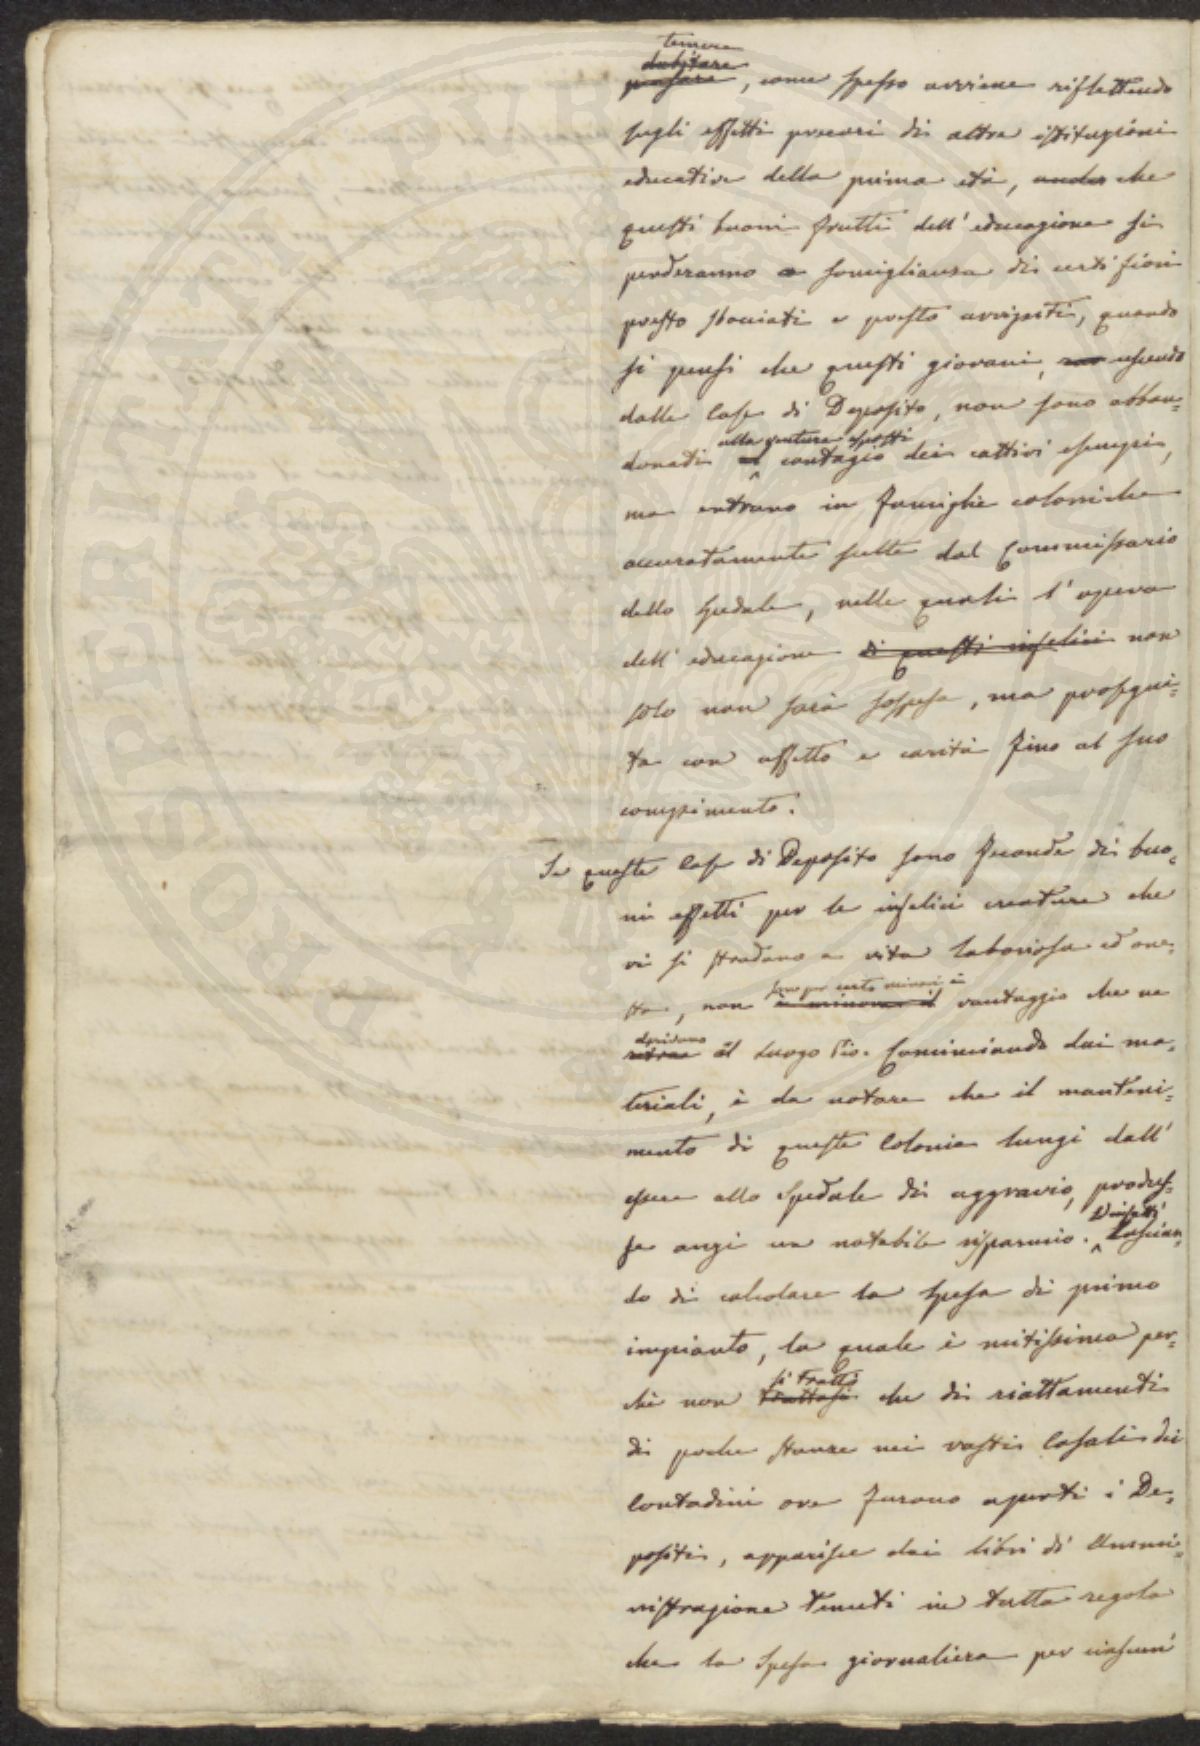 temere
dubitare
pensare, come spesso avviene riflettendo
sugli effetti precari di altre istituzioni
educative della prima età, che
questi buoni frutti dell' educazione si
perderanno a somiglianza di certi fiori
presto sbocciati e presto avvizziti, quando
si pensi che questi giovani, uscendo
dalle Case di Deposito, non sono abban-
donati al contagio dei cattivi esempi,
alla ventura esposti
ma entrano in famiglie coloniche
accuratamente scelte dal Commissario
dello Spedale, nelle quali l' opera
dell' educazione di questi infelici non
solo non sarà sospesa, ma prosegui-
ta con affetto e carità fino al suo
compimento.
Se queste Case di Deposito sono feconde di buo-
ni effetti per le infelici creature che
vi si stradano a vita laboriosa ed one-
sta, non è minore il vantaggio che ne
sono per certo minori i
derivano
ritrae al Luogo Pio. Cominciando dai ma-
teriali, è da notare che il manteni-
mento di queste Colonie lungi dall'
essere allo Spedale di aggravio, produs-
se anzi un notabile risparmio. Lascian-
Diffatti
do di calcolare la spesa di primo
impianto, la quale è mitissima per-
chè non trattasi che di riattamenti
si trattò
di poche stanze nei vasti Casali dei
Contadini ove furono aperti i De-
positi, apparisce dai libri di Ammi-
nistrazione tenuti in tutta regola
che la spesa giornaliera per ciascun'